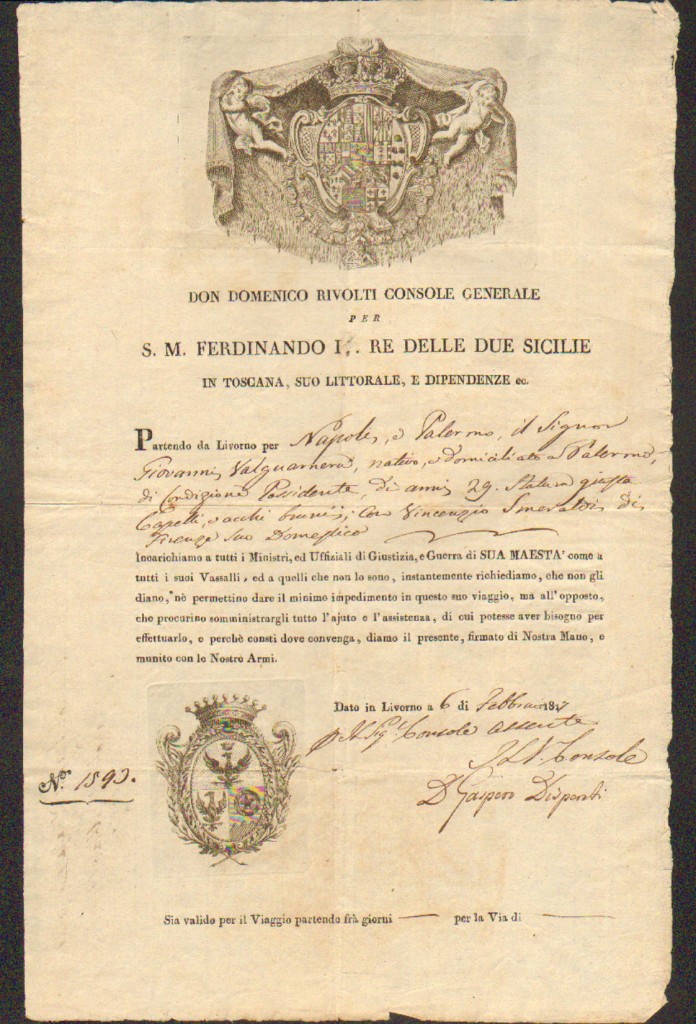 DON DOMENICO RIVOLTI CONSOLE GENERALE
PER
S. M. FERDINANDO I. RE DELLE DUE SICILIE
IN TOSCANA, SUO LITTORALE, E DIPENDENZE ec.
Partendo da Livorno per Napoli, e Palermo, il Signor
Giovanni Valguarnera, nativo, e domiciliato a Palermo,
di Condizione Possidente, di anni 29. Statura giusta
Capelli, e occhi bruni; con Vincenzio Smeraldi di
Firenze suo Domestico
Incarichiamo a tutti i Ministri, ed Uffiziali di Giustizia, e Guerra di SUA MAESTA' come a
tutti i suoi Vassalli, ed a quelli che non lo sono, instantemente richiediamo, che non gli
diano, nè permettino dare il minimo impedimento in questo suo viaggio, ma all'opposto,
che procurino somministrargli tutto l'ajuto e l'assistenza, di cui potesse aver bisogno per
effettuarlo, e perchè consti dove convenga, diamo il presente, firmato di Nostra Mano, e
munito con le Nostre Armi.
Dato in Livorno a 6 di Febbraio 1817
Il Sig.r Console assente
Il V. Console
D. Gaspero Disperati
No. 1593.
Sia valido per il Viaggio partendo frà giorni — per la Via di —